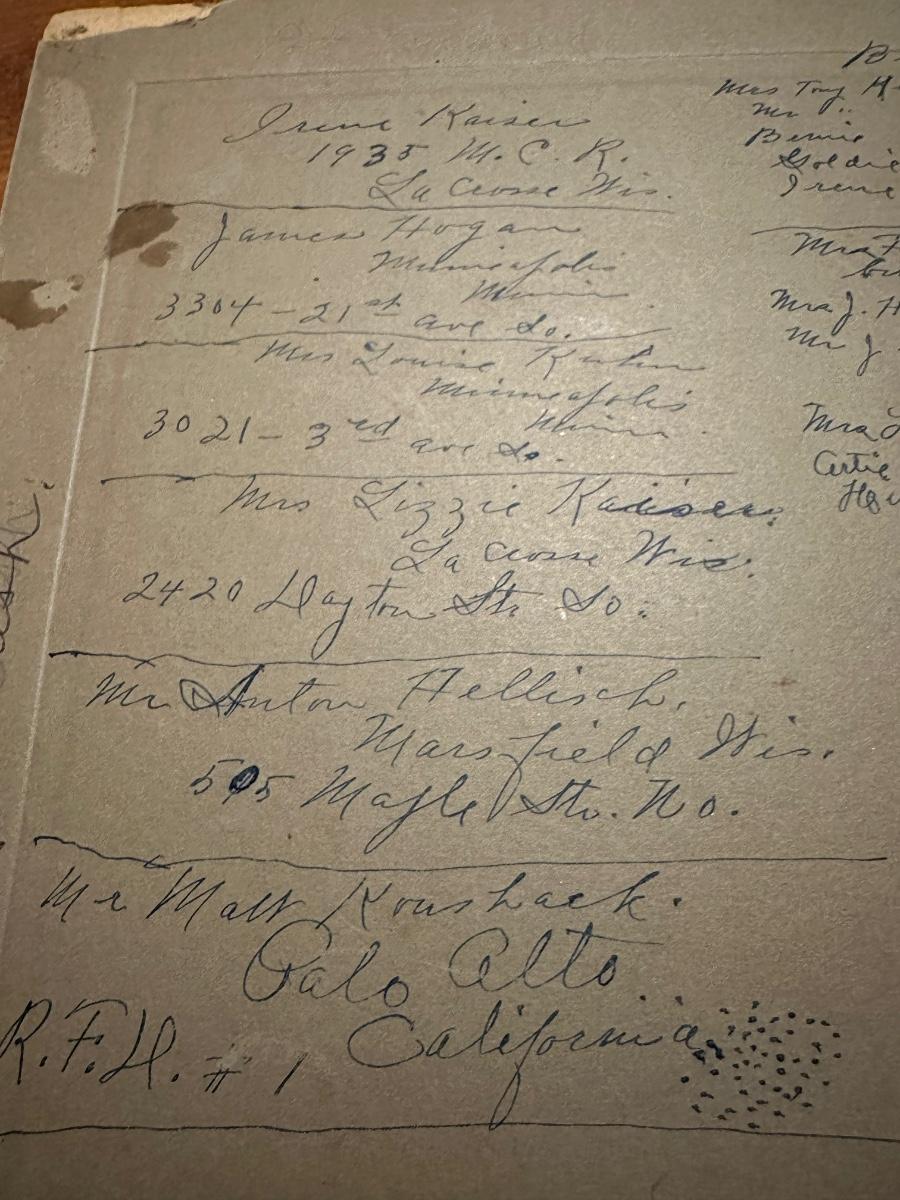 Irene Kaiser
1935 M. C. R.
La Crosse Wis.
James Hogan
Minneapolis
Minn.
3304 - 21st ave So.
Mrs Louise
Minneapolis
Minn.
3021 - 3rd ave So.
Mrs Lizzie Kaiser.
La Crosse Wis.
2420 Dayton Str So.
Mr Anton Hellisch.
Marsfield Wis.
505 Maple Str. No.
Mr Matt Koushack.
Palo Alto
California
R.F.D. # 1
Mrs Tony H
Mr "
Bernie
Goldie
Irene
Mrs
Mrs J. H
Mr J
Mrs
Artie